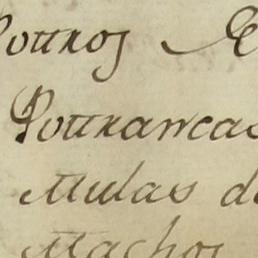 Potros
Potrancas
Mulas d
Machos